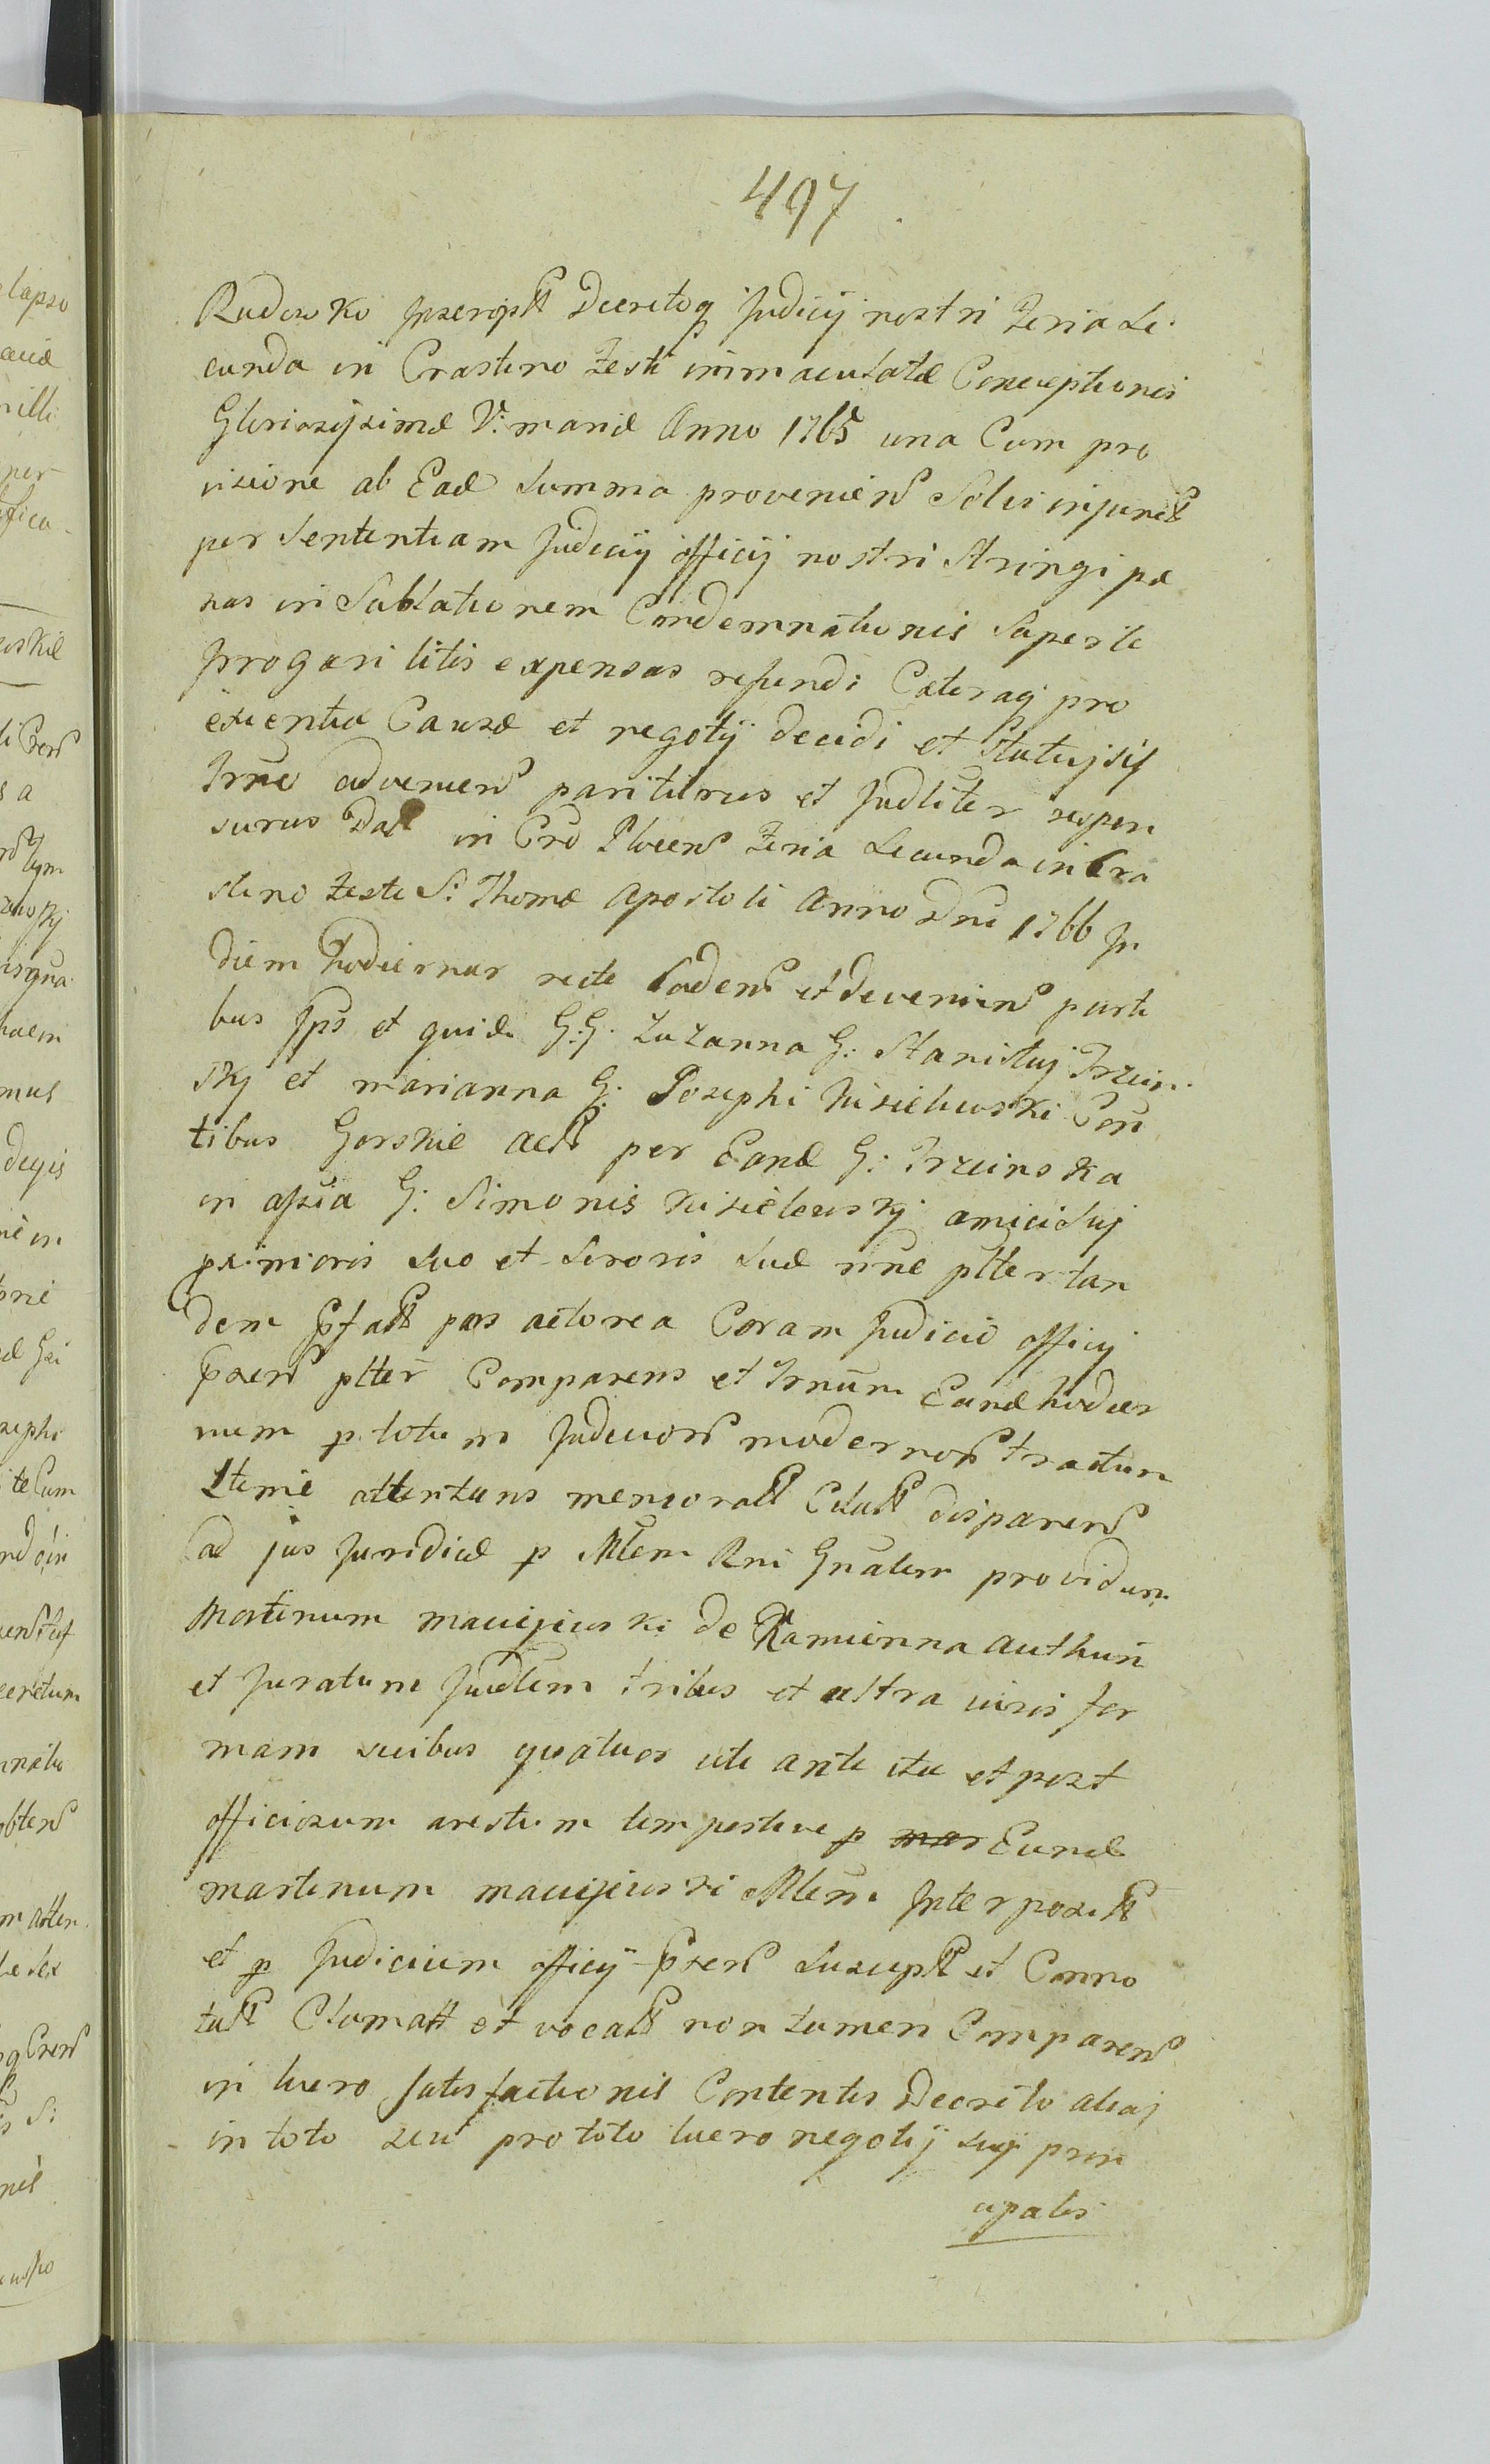 497
Rudowko Inscript Decretoq Judicij nostri Feria Se
cunda in Crastino Festi immaculatæ Conceptionis
Gloriosissimæ V: mariæ Anno 1765 una Cum pro
visione ab Ead Summa provenien Solvi injunct
per Sententiam Judicij officij nostri Stringi pæ
nas in Sublationem Condemnationis Superlu
Irrogari litis expensas refundi Cæteraq pro
exientia Causæ et negotij decidi et
Trno advenien pariturus et Judliter respon
surus Dat in Cro Plocen Feria Secunda in Cra
stino Festi S: Thomæ Apostoli Anno Dni 1766 In
diem hodiernur recte Caden et devenien parti
bus Ips et quid G:G: Zuzanna G: Stanislaj Trzcin
skj et marianna G: Josephi Kisielewski Con
tibus Gorskie act per Eand G: Trzcinska
in assia G: Simonis Kisielewskj amici Suj
primoris Suo et Sororis Suæ nne pltter tan
dem Ipfatt pars actorea Coram Judicio officij
pxen pltter Comparens et Trnum Eund hodier
num p totum Judicior modernor tractum
Ltenie attentans memoratt Citatt disparen
ad jus Juridice p Mlem Rni Gnalem providum
Martinum maciejewski de Kamienna authen
et Juratum Judlem tribus et ultra juris for
mam vicibus quatuor uti ante itu et post
officiosum arestum tempestive p Eund
martinum maciejewski Mlem Interposit
et p Judicium officij pxen Suscept et Conno
tatt Clamatt et vocatt non tamen Comparen
in lucro Satisfactionis Contentis Decreto aliaj
in toto seu pro toto lucro negotij suj prin
cipalis